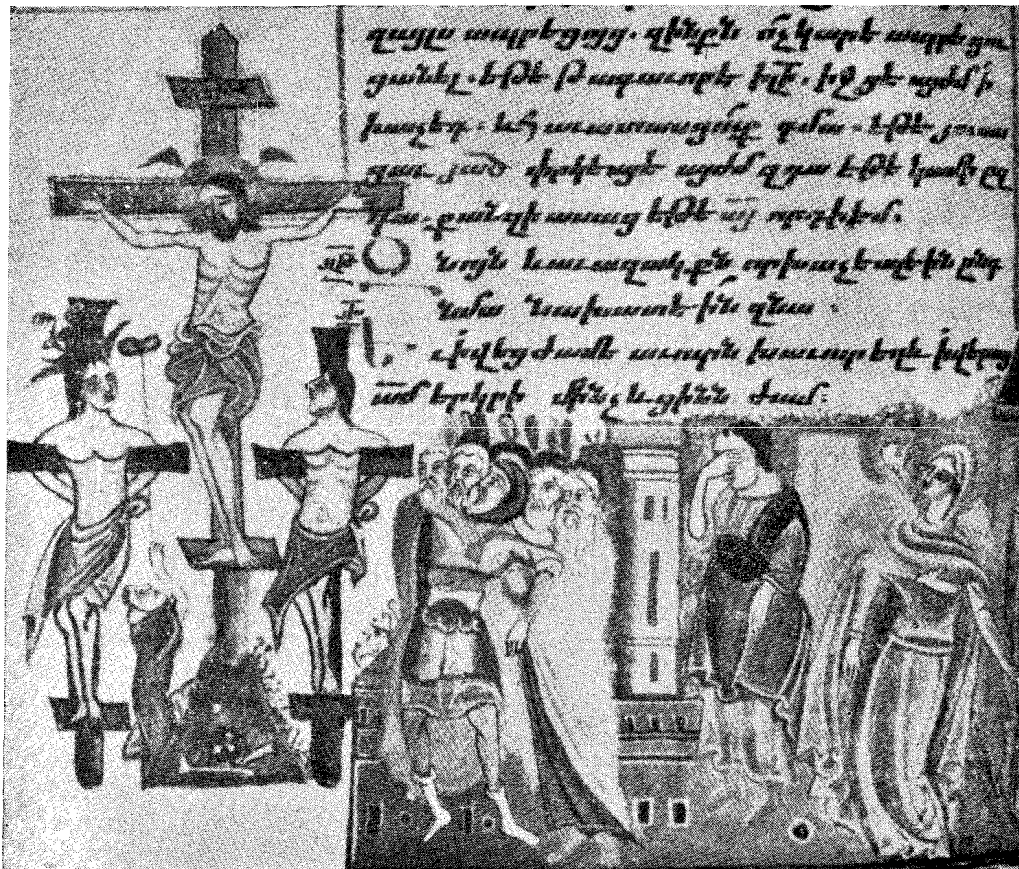 զայլս ապրեցոյց. զինքն ոչ կարէ ապրեցու
ցանել. եթէ թագաւոր է իջցէ այժմ ի
խաչէդ. եւ հաւատասցուք դմա. եթէ յուսա
ցաւ յած փրկեսցէ այժմ զդա եթէ կամի զ
դա. քանզի ասաց եթէ այ որդի եմ.
նոյն և աւազակքն որ խաչեալ էին ընդ
նմա նախատէին զնա.
Ի վեց ժամէ աւուրն խաւար եղև ի վերայ
ամ երկրի մինչև ցինն ժամ: